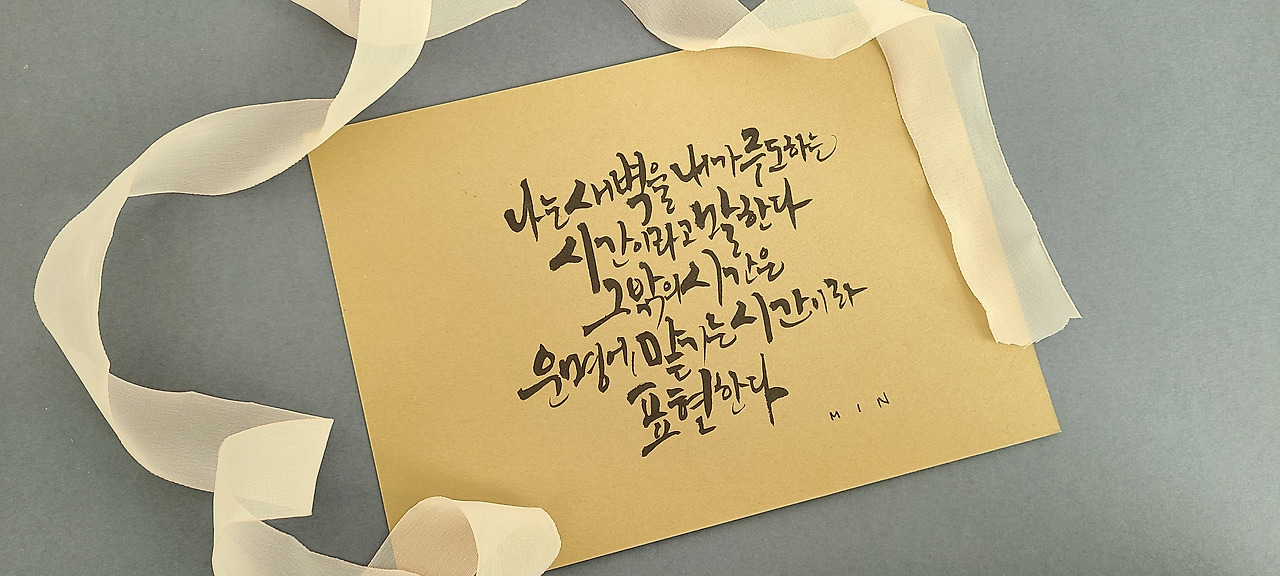 나는 새벽을 내가 주도하는
시간이라고 말한다
그 밖의 시간은
운명에 맡기는 시간이라
표현한다
MIN